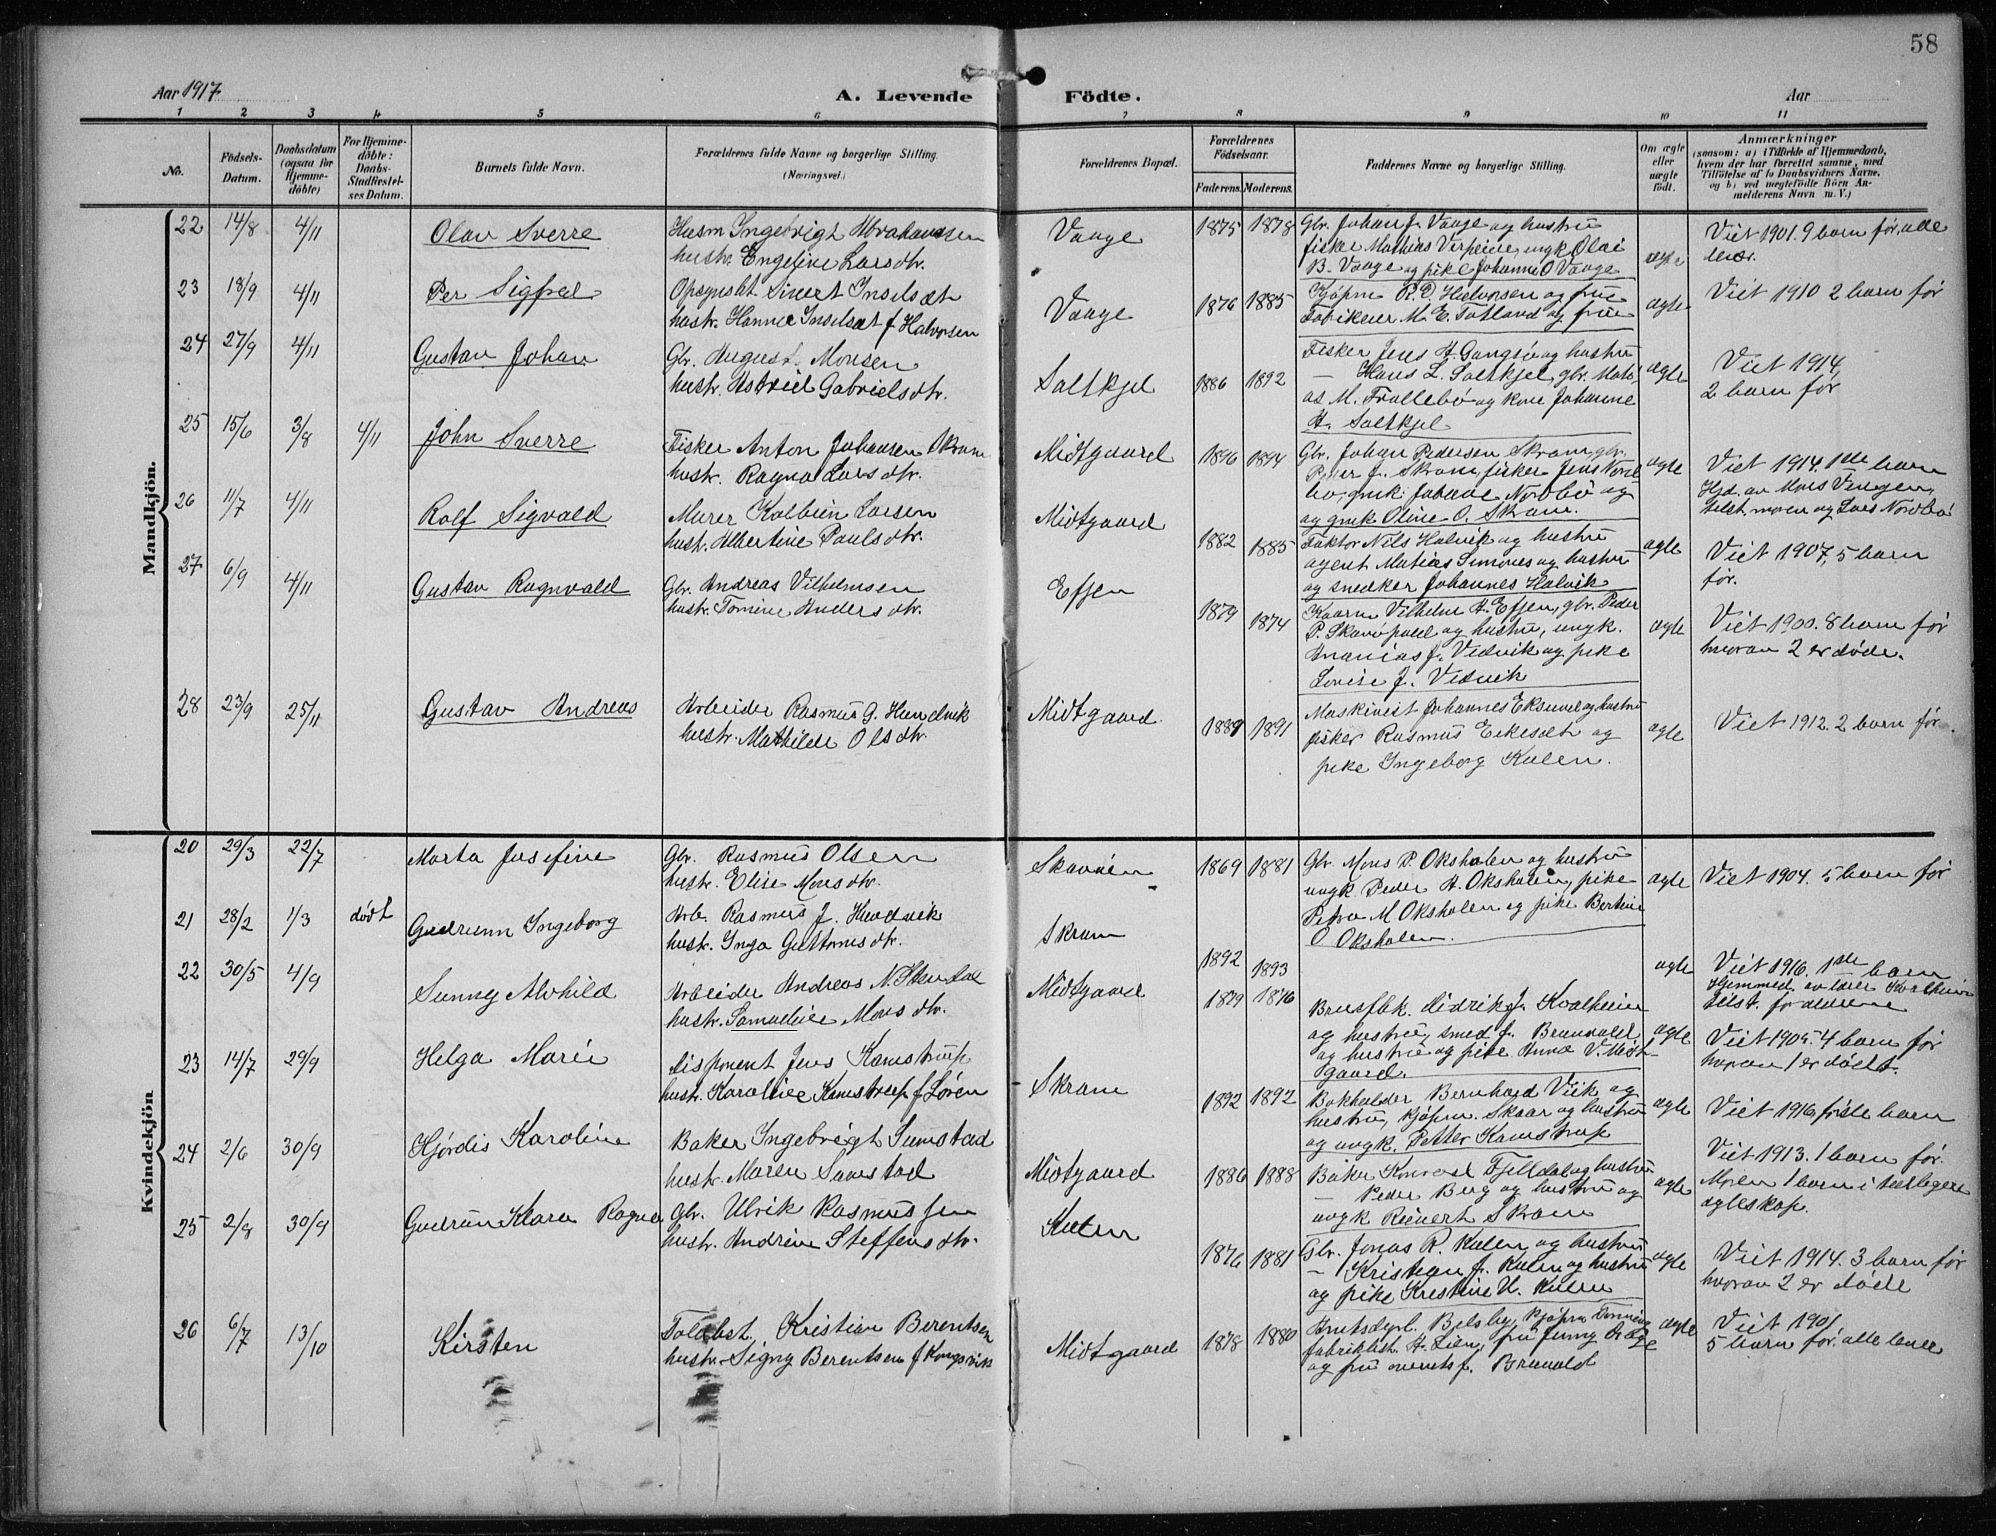 58
Aar 1917
A. Levende Födte.
Aar
1 2 3 4 5 6 7 8 9 10 11
No.
Födsels-Datum.
Daabsdatum (ogsaa for Hjemmedöbte)
For Hjemmedöbte: Daabs-Stadfæstelses Datum.
Barnets fulde Navn.
Forældrenes fulde Navne og borgerlige Stilling. (Næringsvei.)
Forældrenes Bopæl.
Forældrenes Födselsaar.
Faderens. Moderens.
Faddernes Navne og borgerlige Stilling.
Om ægte eller uægte födt.
Anmærkninger (saasom: a) i Tilfælde af Hjemmedaab, hvem der har forrettet samme, med Tilföielse af to Daabsvidners Navne, og b) ved uegtefödte Börn Anmelderens Navn m. V.)
Mandkjön.
22 14/8 4/11 Olav Sverre
Husm Ingebrigt Abrahamsen
hustr. Engeline Larsdtr.
Vaage 1875 1878
Gbr. Johan J. Vaage og hustru
fisker Mathias Verpeide, ungk Olai
B. Vaage og pike Johanne O Vaage
ægte
Viet 1901. 9 barn før, alle
23 18/9 4/11 Per Sigfred
Opsynsbt Sivert Inselset
hustr. Hanna Inselset f Halvorsen
Vaage 1876 1885
Kjøpm R. D. Halvorsen og frue
Fabrikeier M. E. Totland og frue
ægte
Viet 1910 2 barn før
24 27/9 4/11 Gustav Johan
Gbr. August Monsen
hustr. Astrid Gabrielsdtr.
Saltkjel 1886 1892
Fisker Jens A. Gangsø og hustru
— Hans L. Saltkjel, gbr. Mati-
as M. Frøllebø og kone Johanne
A. Saltkjel
ægte
Viet 1914
2 barn før
25 15/6 3/8 4/11 John Sverre
Fisker Anton Johansen Skram
hustr. Ragna Larsdtr.
Midtgaard 1896 1894
Gbr. Johan Pedersen Skram, gbr.
Peter J. Skram, fisker Jens Nord-
bø, gmk. Johanne Nordbø og
og gmk Oline O. Skram.
ægte
Viet 1914. 1ste barn
Hjd. av Mons Vengen,
tilst. moren og Lars Nordbø
26 11/7 4/11 Rolf Sigvald
Murer Kolbein Larsen
hustr. Albertine Paulsdtr.
Midtgaard 1882 1885
Faktor Nils Halvik og hustru
agent Matias Simones og hustru
og snedker Johannes Halvik
ægte
Viet 1907, 5 barn
før.
27 6/9 4/11 Gustav Ragnvald
Gbr. Andreas Vilhelmsen
hustr. Tomine Andersdtr.
Effen 1879 1874
Kaarm Vilhelm A. Effen, gbr. Peder
P. Skavøpold og hustru, ungk.
Ananias J. Vedvik og pike
Lovise J. Vedvik
ægte
Viet 1900. 8 barn før
hvorav 2 er døde.
28 23/9 25/11 Gustav Andreas
Arbeider Rasmus G. Hundvik
hustr. Mathilde Olsdtr.
Midtgaard 1889 1891
Maskinist Johannes Eksund og hustru
fisker Rasmus Eikeset og
pike Ingeborg Kulen.
ægte
Viet 1912. 2 barn før.
Kvindekjön
20 29/3 22/7 Marta Josefine
Gbr. Rasmus Olsen
hustr. Elise Monsdtr.
Skavøen 1869 1881
Gbr. Mons P. Oksholen og hustru
ungk Peder A. Oksholen, pike
Petra M Oksholen og pike Bertine
O Oksholen.
ægte
Viet 1904. 5 barn før
21 28/2 1/3 dødt Gudrunn Ingeborg
Arb. Rasmus J. Hundvik
hustr. Inga Guttormsdtr.
Skram 1892 1893
ægte
Viet 1916. 1ste barn
Hjemmed. av lærer Kvalheim
tilst. foreldrene
22 30/5 4/9 Sunny Alvhild
Arbeider Andreas N. Skurdal
hustr. Samueline Monsdtr.
Midtgaard 1879 1876
Brusfbk. Didrik J. Kvalheim
og hustru, smed J. Brunvold
og hustru og pike Anna V. Midt-
gaard.
ægte
Viet 1905. 4 barn før
hvorav 1 er dødt.
23 14/7 29/9 Helga Marie
Disponent Jens Kamstrup
hustr. Karoline Kamstrup f Løren
Skram 1892 1892
Bokholder Bernhard Viik og
hustru, kjøpm. Skaar og hustru
og ungk. Petter Kamstrup
ægte
Viet 1916, første barn
24 2/6 30/9 Hjørdis Karoline
Baker Ingebrigt Sunstad
hustr. Maren Sunstad
Midtgaard 1886 1888
Baker Konrad Fjelldal og hustru
— Peder Berg og hustru og
ungk Reinert Skram
ægte
Viet 1913. 1 barn før.
Moren 1 barn i tidligere
egteskap.
25 2/8 30/9 Gudrun Klara Ragna
Gbr. Ulrik Rasmussen
hustr. Andrine Steffensdtr.
Kulen 1876 1881
Gbr. Jonas R. Kulen og hustru
— Kristian J. Kulen og hustru
og pike Kristine U. Kulen
ægte
Viet 1914. 3 barn før
hvorav 2 er døde
26 6/7 13/10 Kirsten
Toldbst. Kristian Berentsen
hustr. Signy Berentsen f Kongsvik
Midtgaard 1878 1880
Amtsdyrl. Belsby, kjøpm Tønning
fabrikbst. A. Lien, fru Jenny
og fru overrets. Brunvold
ægte
Viet 1901
5 barn før. alle lever